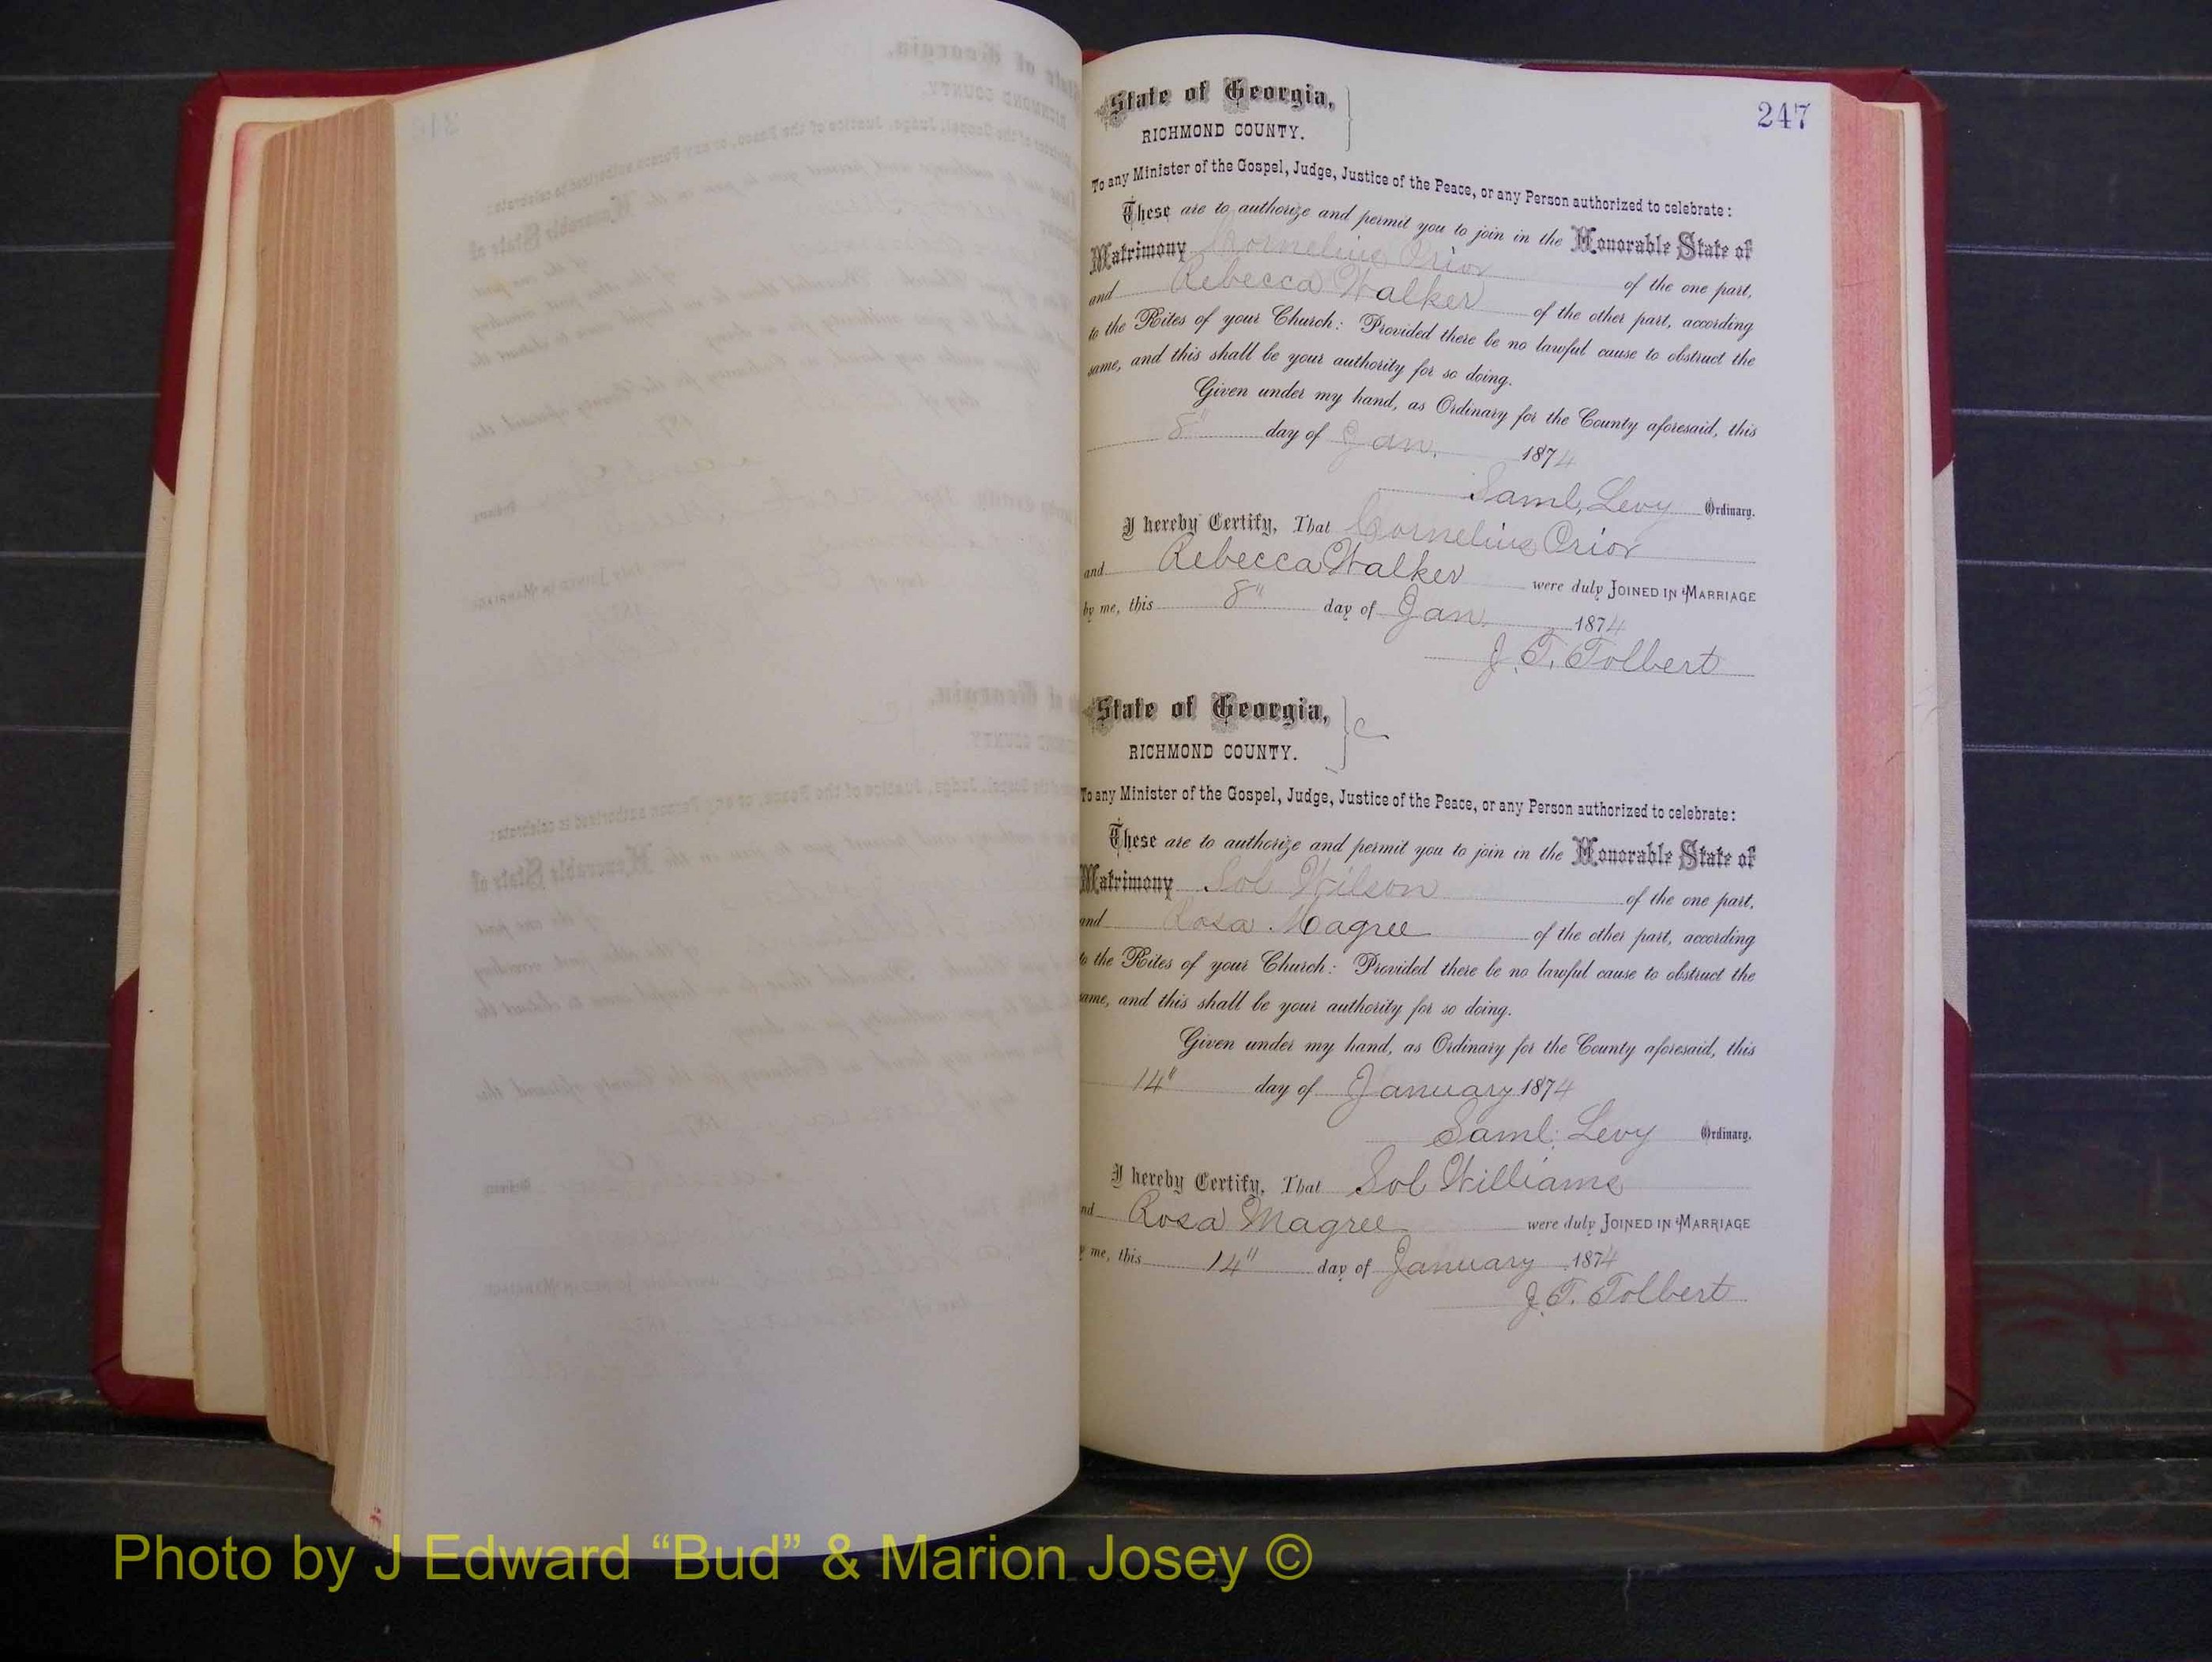 247
State of Georgia,
RICHMOND COUNTY.
To any Minister of the Gospel, Judge, Justice of the Peace, or any Person authorized to celebrate:
These are to authorize and permit you to join in the Honorable State of
Matrimony Cornelius Prior of the one part,
and Rebecca Walker of the other part, according
to the Rites of your Church: Provided there be no lawful cause to obstruct the
same, and this shall be your authority for so doing.
Given under my hand, as Ordinary for the County aforesaid, this
8" day of Jan. 1874
Saml. Levy Ordinary.
I hereby Certify, That Cornelius Prior
and Rebecca Walker were duly JOINED IN MARRIAGE
by me, this 8" day of Jan. 1874
J. T. Tolbert
State of Georgia, C
RICHMOND COUNTY.
To any Minister of the Gospel, Judge, Justice of the Peace, or any Person authorized to celebrate:
These are to authorize and permit you to join in the Honorable State of
Matrimony Sol Wilson of the one part,
and Rosa Magree of the other part, according
to the Rites of your Church: Provided there be no lawful cause to obstruct the
same, and this shall be your authority for so doing.
Given under my hand, as Ordinary for the County aforesaid, this
14" day of January 1874
Saml. Levy Ordinary.
I hereby Certify, That Sol Williams
nd Rosa Magree were duly JOINED IN MARRIAGE
y me, this 14" day of January 1874
J. T. Tolbert
Photo by J Edward “Bud” & Marion Josey ©